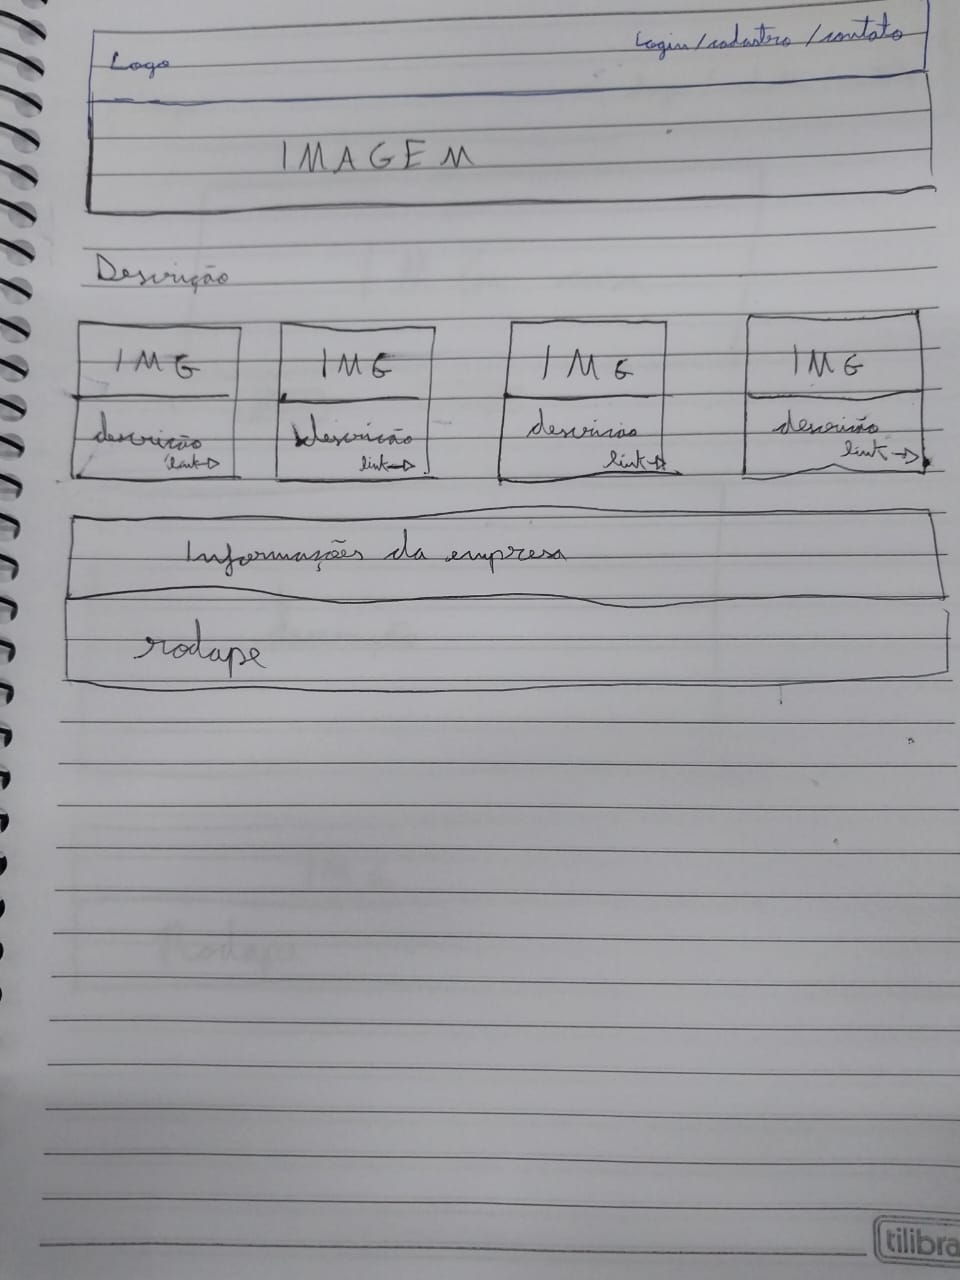 Logo
Login/cadastro/contato
IMAGEM
Descrição
IMG
IMG
IMG
IMG
descrição
link
descrição
link
descricão
link
descrição
link
Informações da empresa
rodape
tilibra